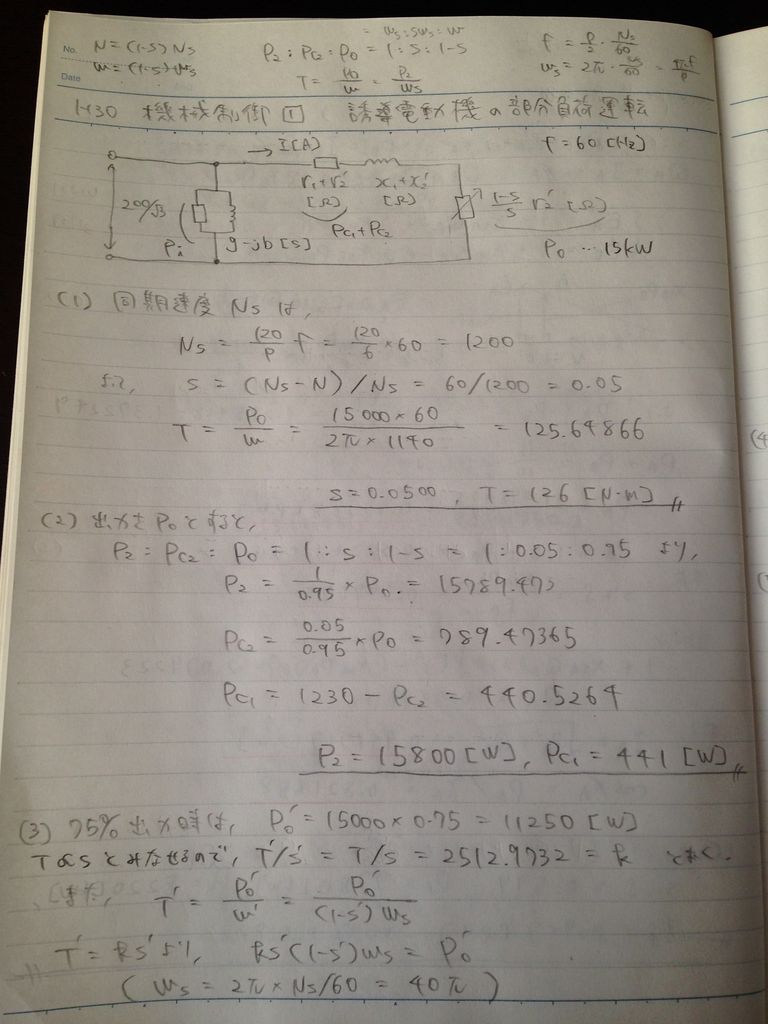 No.
Date
N = (1-S) Ns
= ws : sws : w
P2 : Pc2 : Po = 1 : S : 1-S
T = Po/w = P2/ws
f = P/2 · Ns/60
H30 機械制御 1 誘導電動機の部分負荷運転
f = 60 [Hz]
→ I [A]
200/√3
r1+r2' [Ω]
x1+x2' [Ω]
(1-S)/S r2' [Ω]
Pi
g-jb [S]
Pc1+Pc2
Po … 15kW
(1) 同期速度 Ns は,
Ns = 120/P f = 120/6 × 60 = 1200
よって, s = (Ns-N)/Ns = 60/1200 = 0.05
T = Po/w = (15000×60)/(2π×1140) = 125.64866
s = 0.0500, T = 126 [N·m]
(2) 出力を Po とすると,
P2 : Pc2 : Po = 1 : s : 1-s = 1 : 0.05 : 0.95 より,
P2 = 1/0.95 × Po = 15789.47
Pc2 = 0.05/0.95 × Po = 789.47365
Pc1 = 1230 - Pc2 = 440.5264
P2 = 15800 [W], Pc1 = 441 [W]
(3) 75% 出力時は, Po' = 15000×0.75 = 11250 [W]
T∝S とみなせるので, T'/s' = T/s = 2512.9732 = k とおく.
また, T' = Po'/w' = Po'/((1-s')ws)
T' = ks' より, ks'(1-s')ws = Po'
(ws = 2π×Ns/60 = 40π)
(4